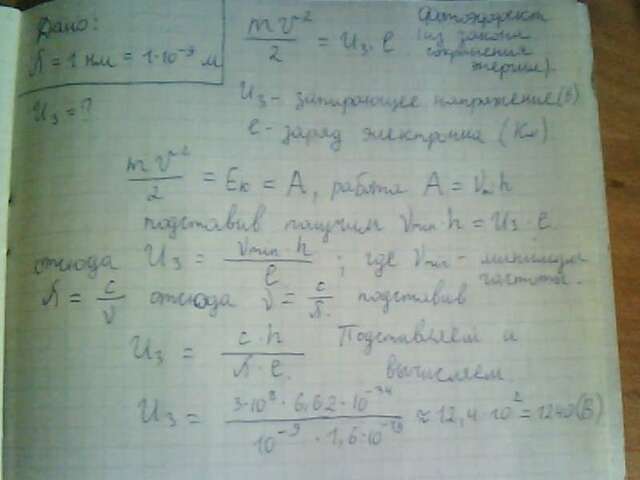 Дано:
λ = 1 нм = 1·10⁻⁹ м
U₃ = ?
mv²/2 = U₃·e
Фотоэффект
(из закона
сохранения
энергии).
U₃ - запирающее напряжение (В)
e - заряд электрона (Кл).
mv²/2 = Eₖ = A, работа A = νₘ h
подставив получим νmin·h = U₃·e.
отсюда U₃ = νmin·h/e ; где νmin - миним
частота.
λ = c/ν отсюда ν = c/λ. подставив
U₃ = c·h/λ·e. Подставляем и
вычисляем.
U₃ = 3·10⁸·6,62·10⁻³⁴/10⁻⁹·1,6·10⁻¹⁹ ≈ 12,4·10² = 1240 (В)